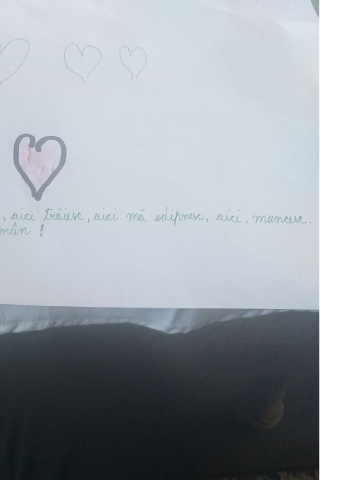 , aici trăiesc, aici mă odihnesc, aici, muncesc.
mân !